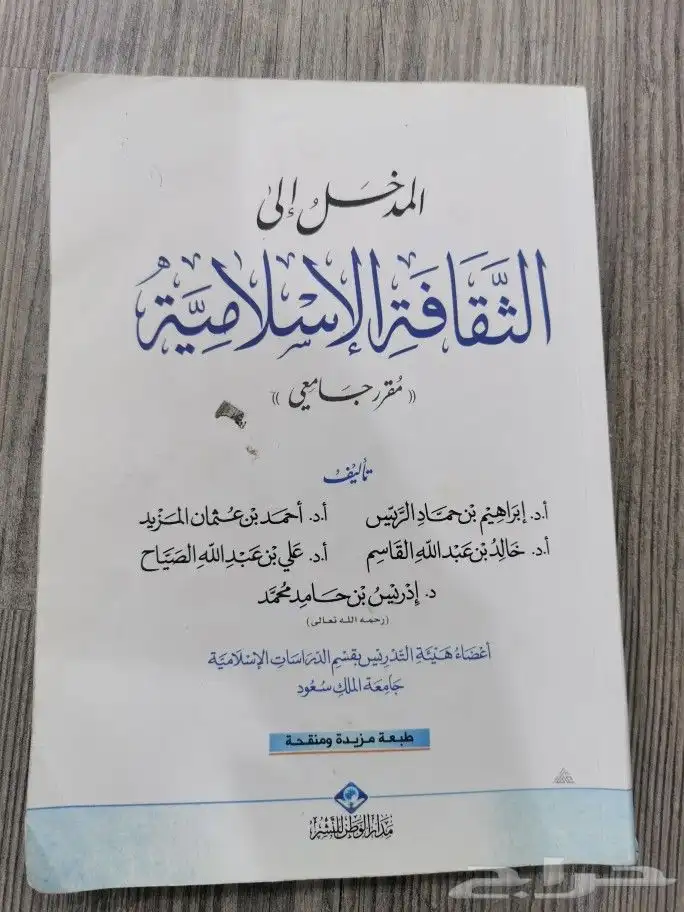 المدخل إلى
الثقافة الإسلامية
«مقرر جامعي»
تأليف
أ.د. إبراهيم بن حماد الريس أ.د. أحمد بن عثمان المزيد
أ.د. خالد بن عبد الله القاسم أ.د. علي بن عبد الله الصياح
د. إدريس بن حامد محمد
(رحمه الله تعالى)
أعضاء هيئة التدريس بقسم الدراسات الإسلامية
جامعة الملك سعود
طبعة مزيدة ومنقحة
مدار الوطن للنشر
حراج